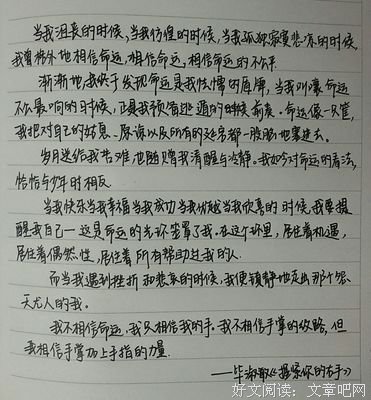 当我沮丧的时候,当我彷徨的时候,当我孤独寂寞悲凉的时候,
我曾格外地相信命运,相信命运,相信命运的不公平
渐渐地,我终于发现命运是我怯懦的盾牌,当我叫嚷命运
不公最响的时候,正是我预备逃遁的时候前奏。命运像一只筐,
我把对自己的姑息、原谅以及所有的延宕都一股脑地塞进去。
岁月送给我苦难,也随赠我清醒与冷静。我如今对命运的看法,
恰恰与少年时相反
当我快乐当我幸福当我成功当我优越当我欣喜的时候,我要提
醒我自己一这是命运的光环笼罩了我。在这个环里,居住着机遇,
居住着偶然性,居住着所有帮助过我的人.
而当我遇到挫折和悲哀的时候,我便镇静地走出那个怨
天尤人的我。
我不相信命运,我只相信我的手。我不相信手掌的纹路,但
我相信手掌加上手指的力量.
——毕淑敏《提紧你的右手》
好文阅读:文章吧网